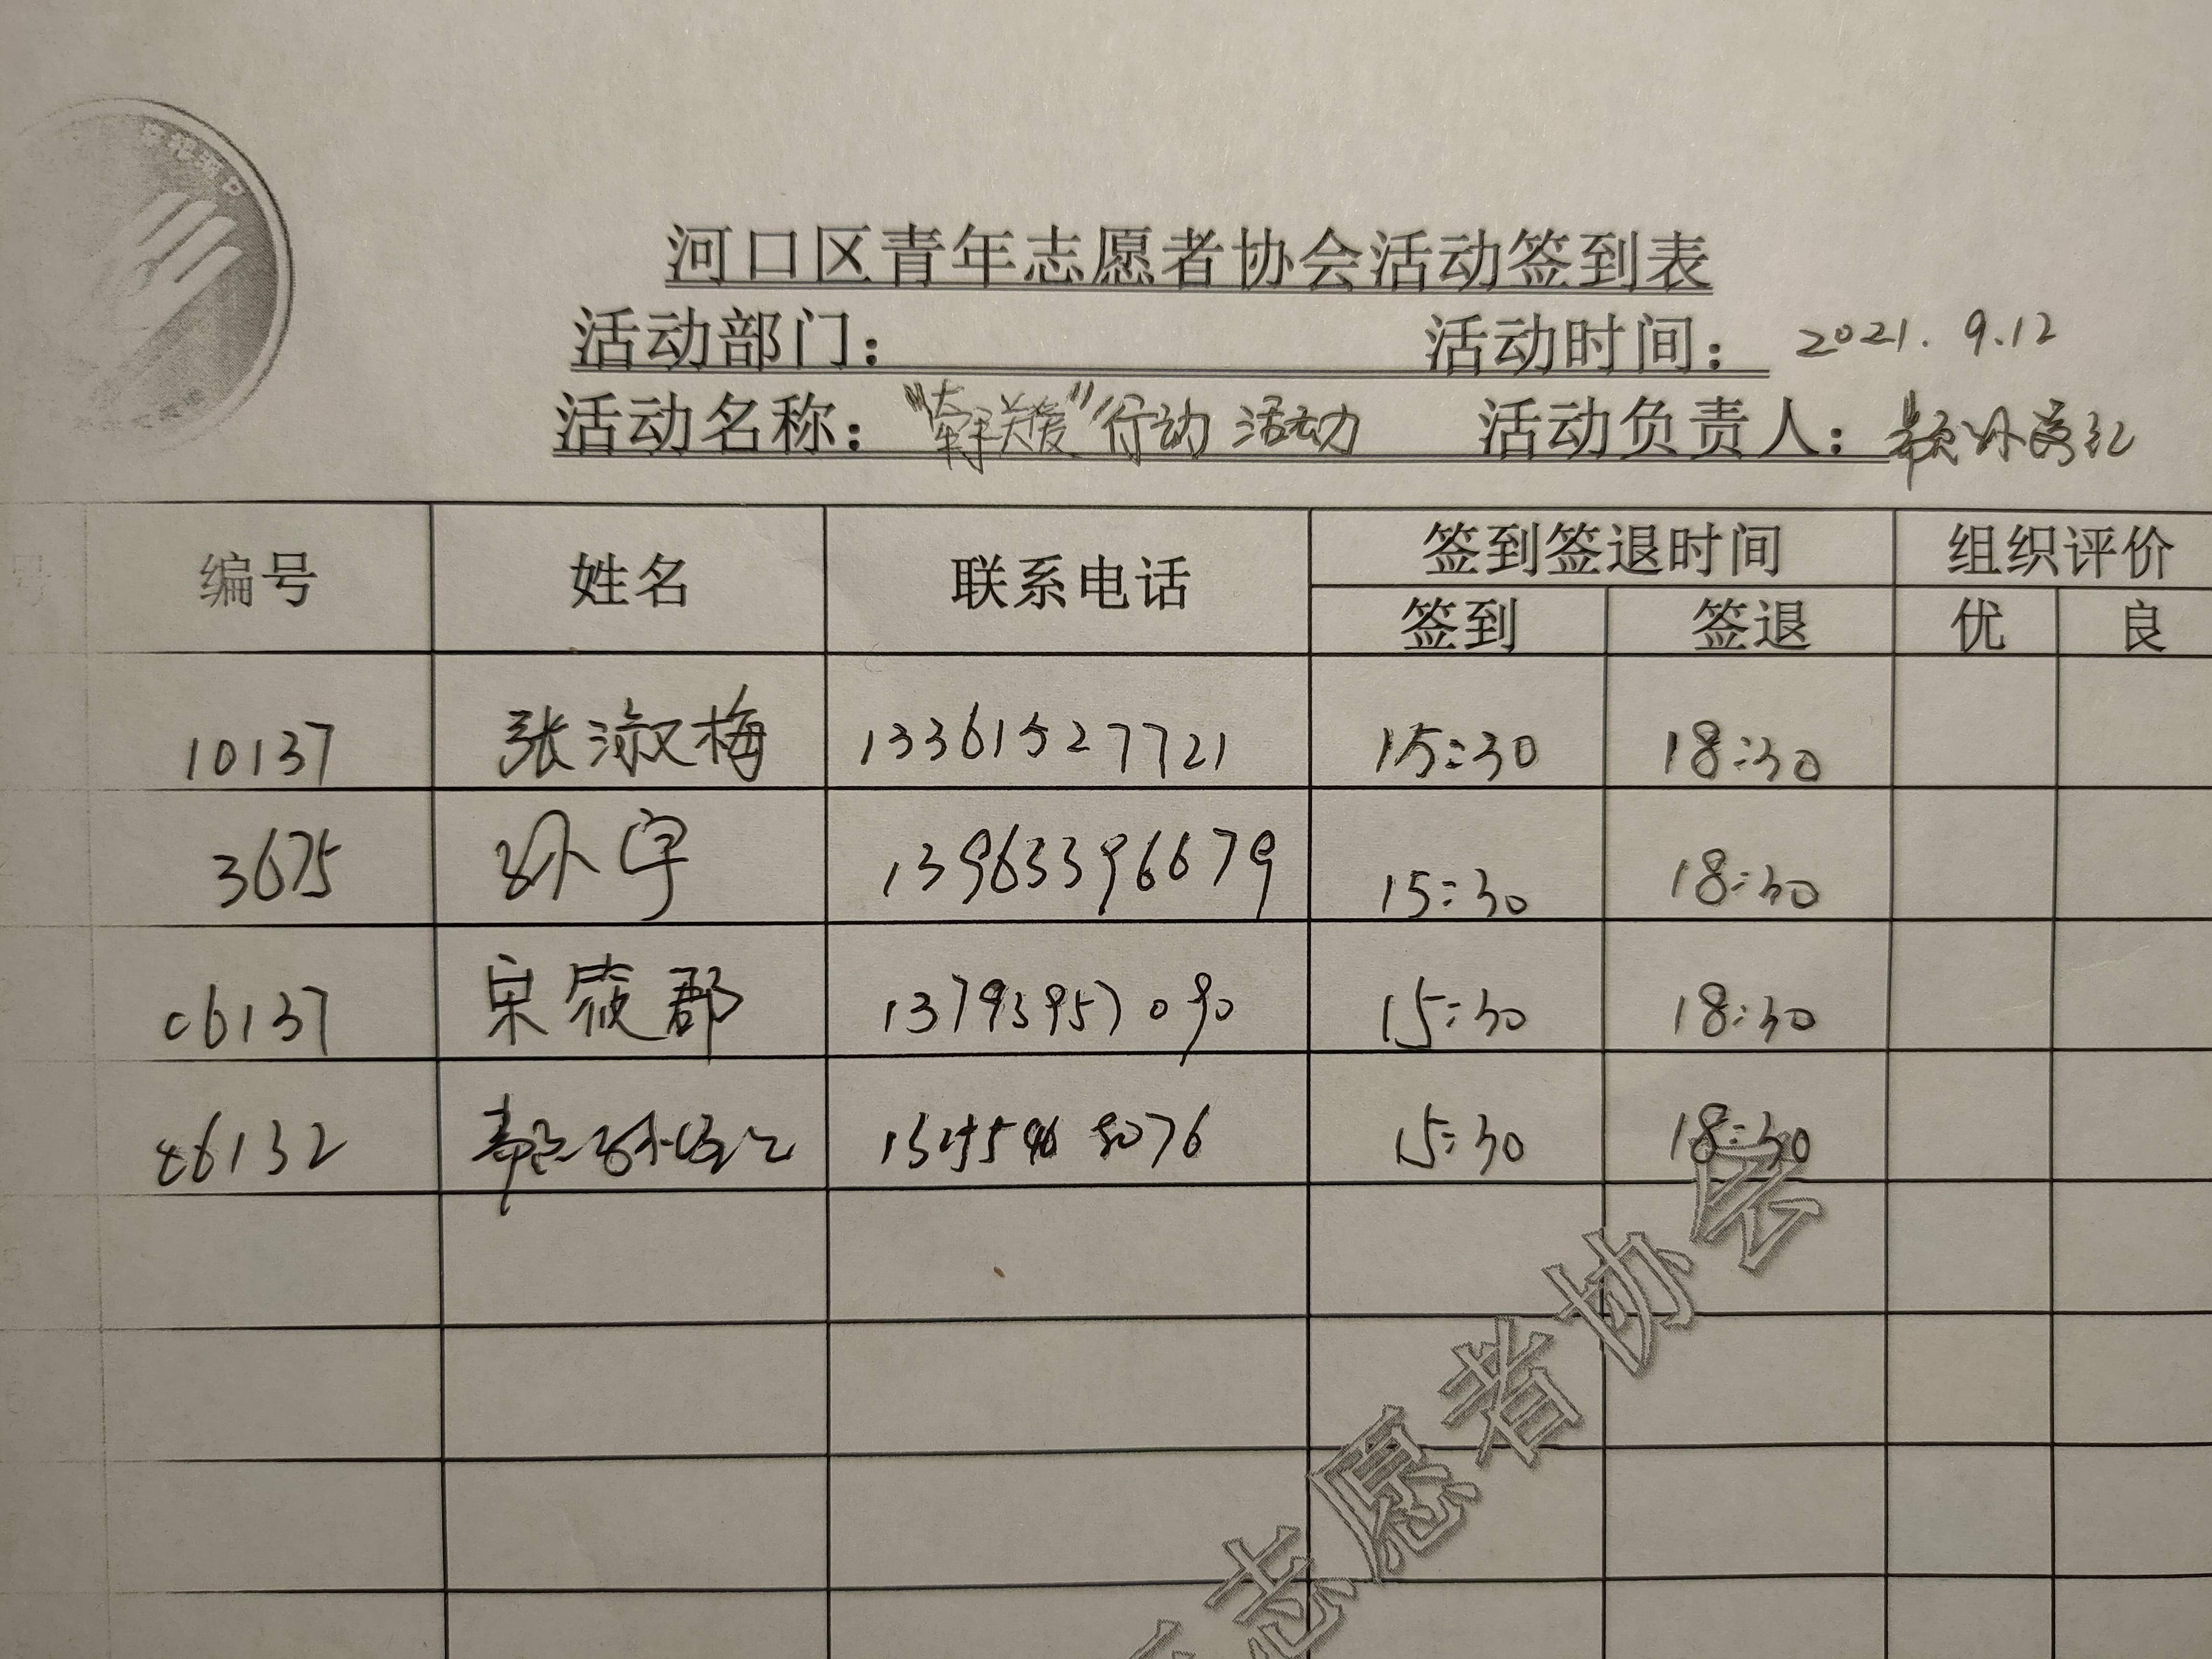 河口区青年志愿者协会活动签到表
活动部门： 活动时间：2021.9.12
活动名称："牵手关爱"行动 活动 活动负责人：
编号 姓名 联系电话 签到签退时间 组织评价
签到 签退 优 良
10137 张淑梅 13361527721 15:30 18:30
3675 孙宇 13963396679 15:30 18:30
06137 宋筱郡 13793957090 15:30 18:30
06132 15:30 18:30
志愿者协会